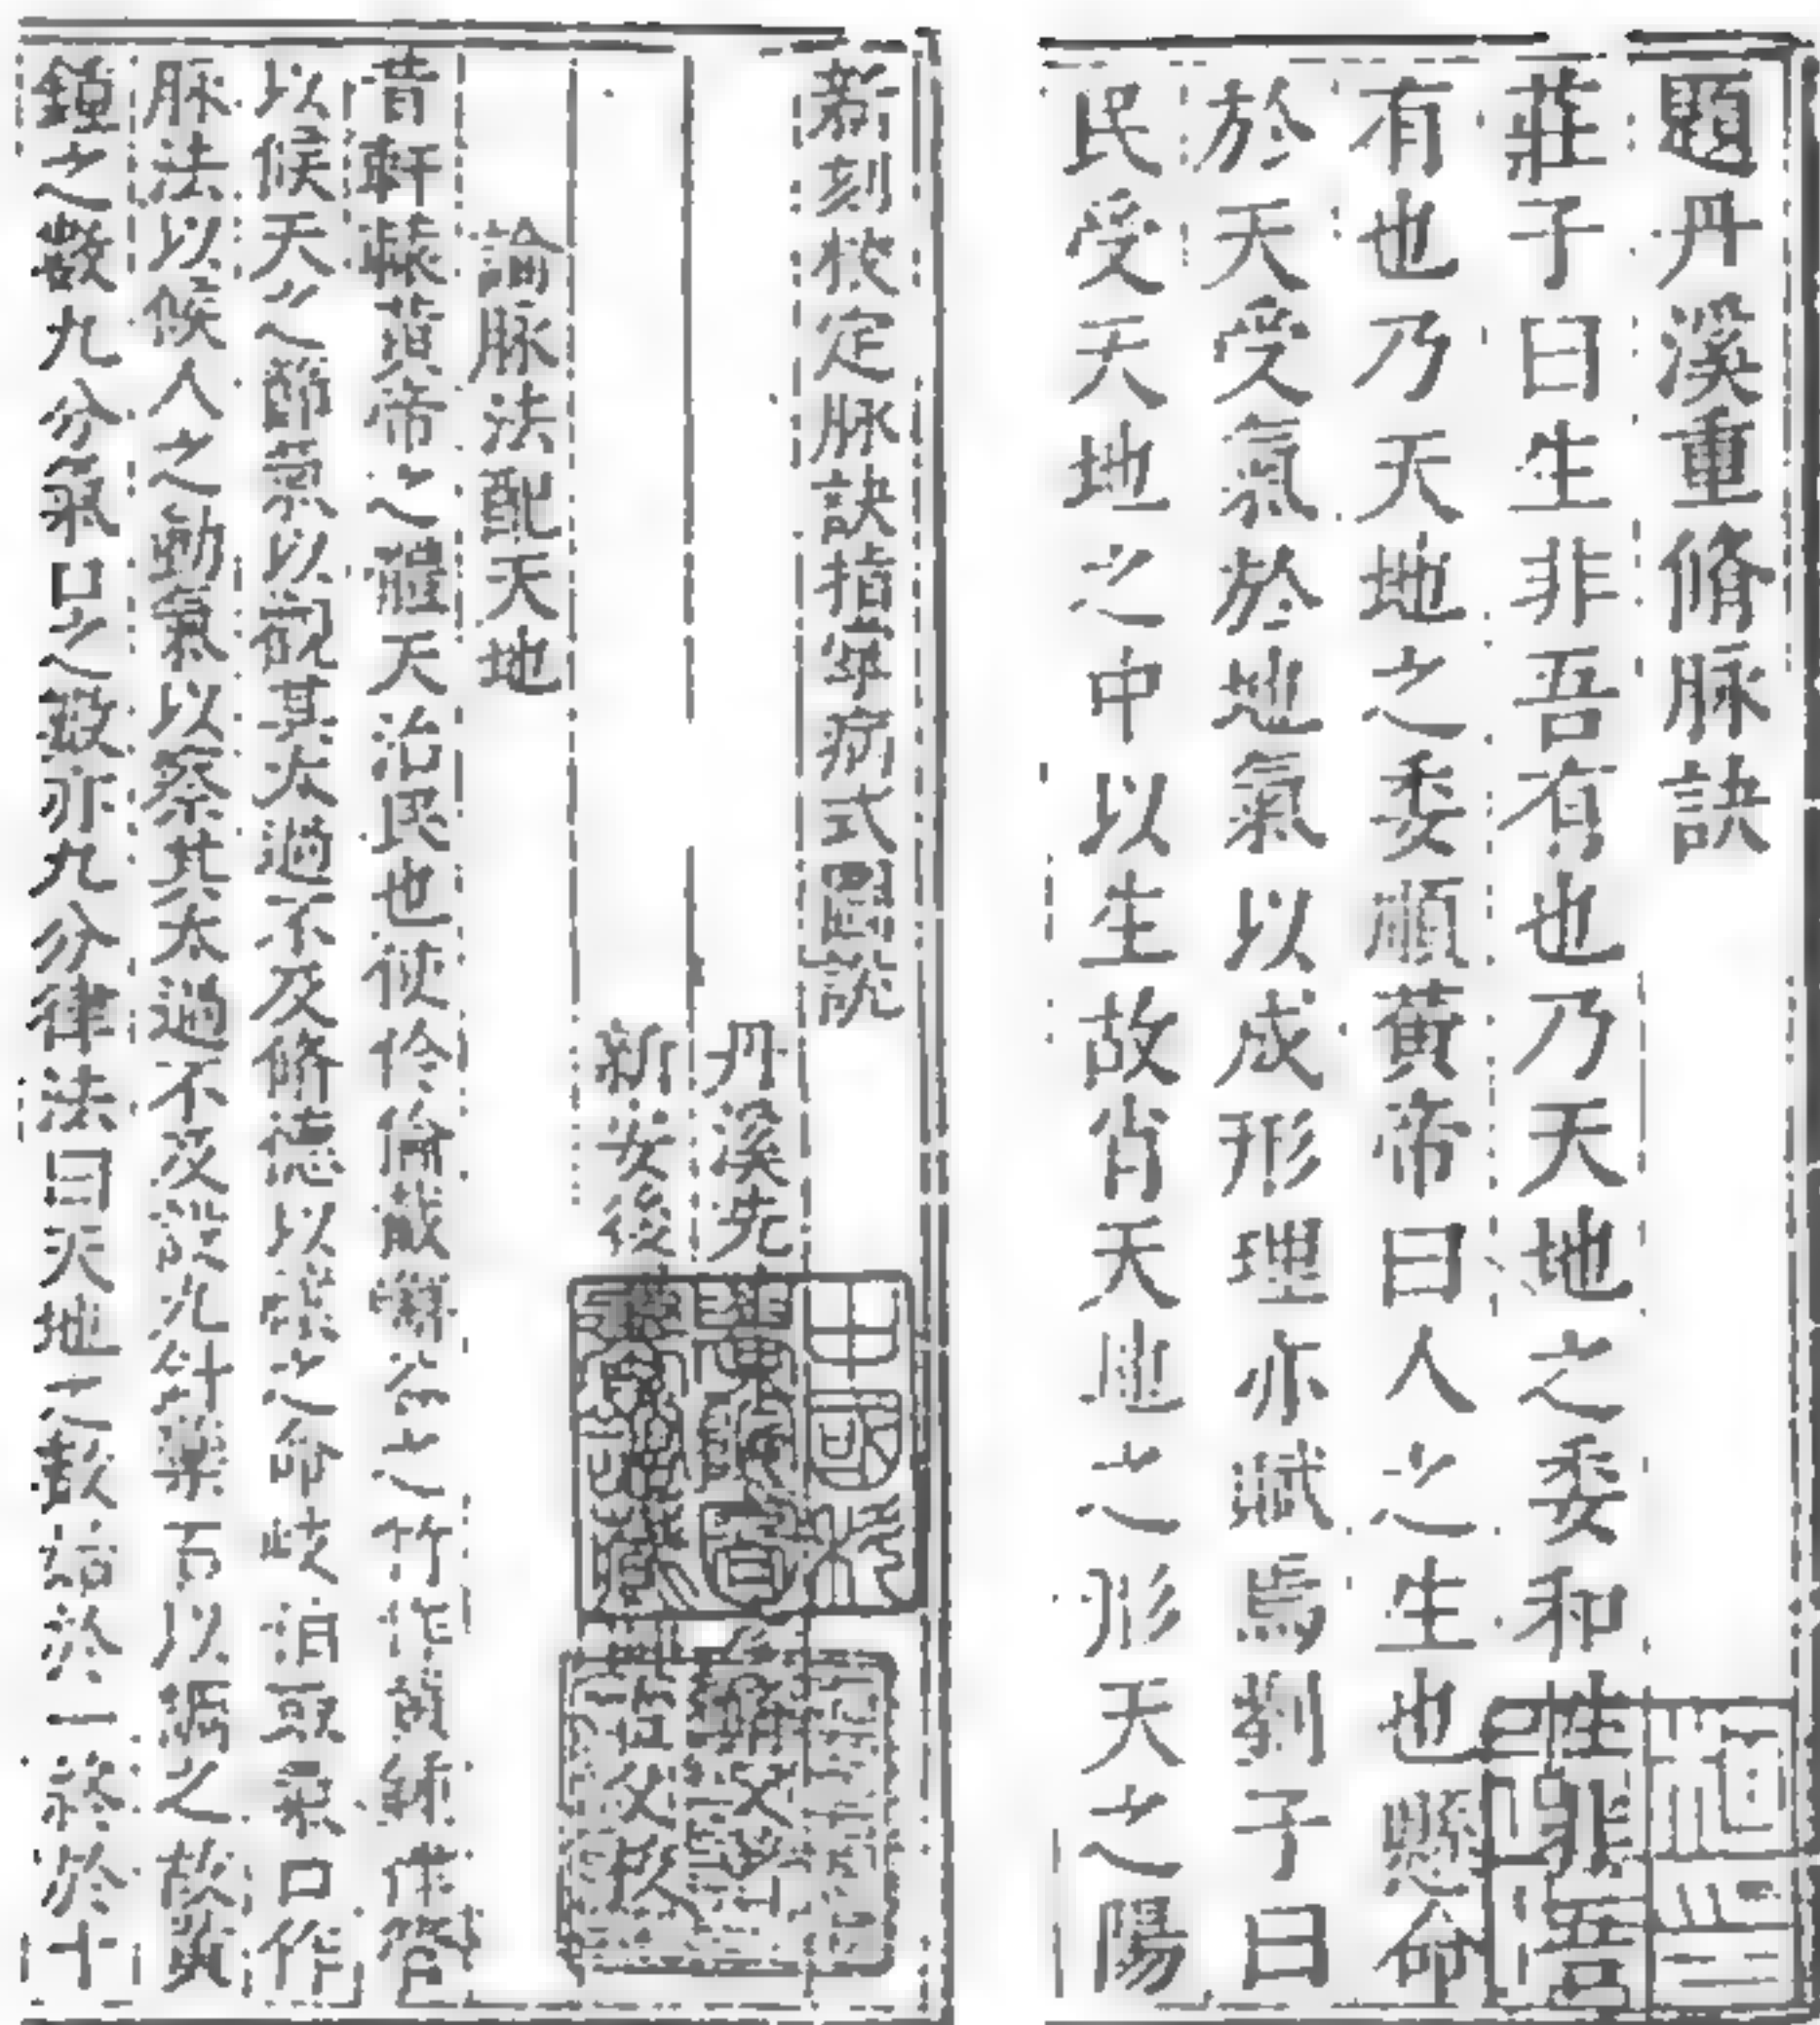 題丹溪重脩脉訣
莊子曰生非吾有也乃天地之委和性非吾
有也乃天地之委順黃帝曰人之生也懸命
於天受氣於地氣以成形理亦賦焉劉子曰
民受天地之中以生故肖天地之形天之陽
新刻校定脉訣指掌病式圖說
丹溪先
新安後
論脉法配天地
昔軒轅黃帝之體天治民也使伶倫截嶰谷之竹作黃鍾律管
以候天之節氣以觀其太過不及脩德以禳之命岐伯取氣口作
脉法以候人之動氣以察其太過不及設九針藥石以調之故黃
鍾之數九分氣口之數亦九分律法曰天地之數始於一終於十